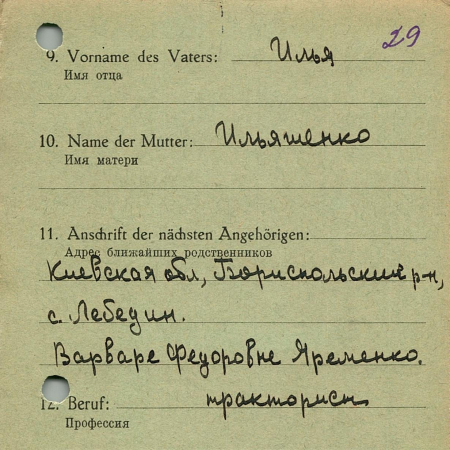 29
9. Vorname des Vaters: Илья
Имя отца
10. Name der Mutter: Ильяшенко
Имя матери
11. Anschrift der nächsten Angehörigen:
Адрес ближайших родственников
Киевская обл, Бориспольский р-н,
с. Лебедин.
Варваре Федоровне Яременко.
12. Beruf: тракторист
Профессия